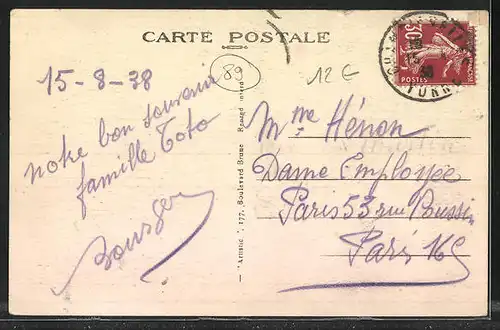 CARTE POSTALE
89
12 €
15-8-38
notre bon souvenir
famille Toto
"Artistic", 177, Boulevard Brune
Mme Hénon
Dame Employée
Paris 53 rue Poussin
Paris 16e
30c
POSTES
YONNE